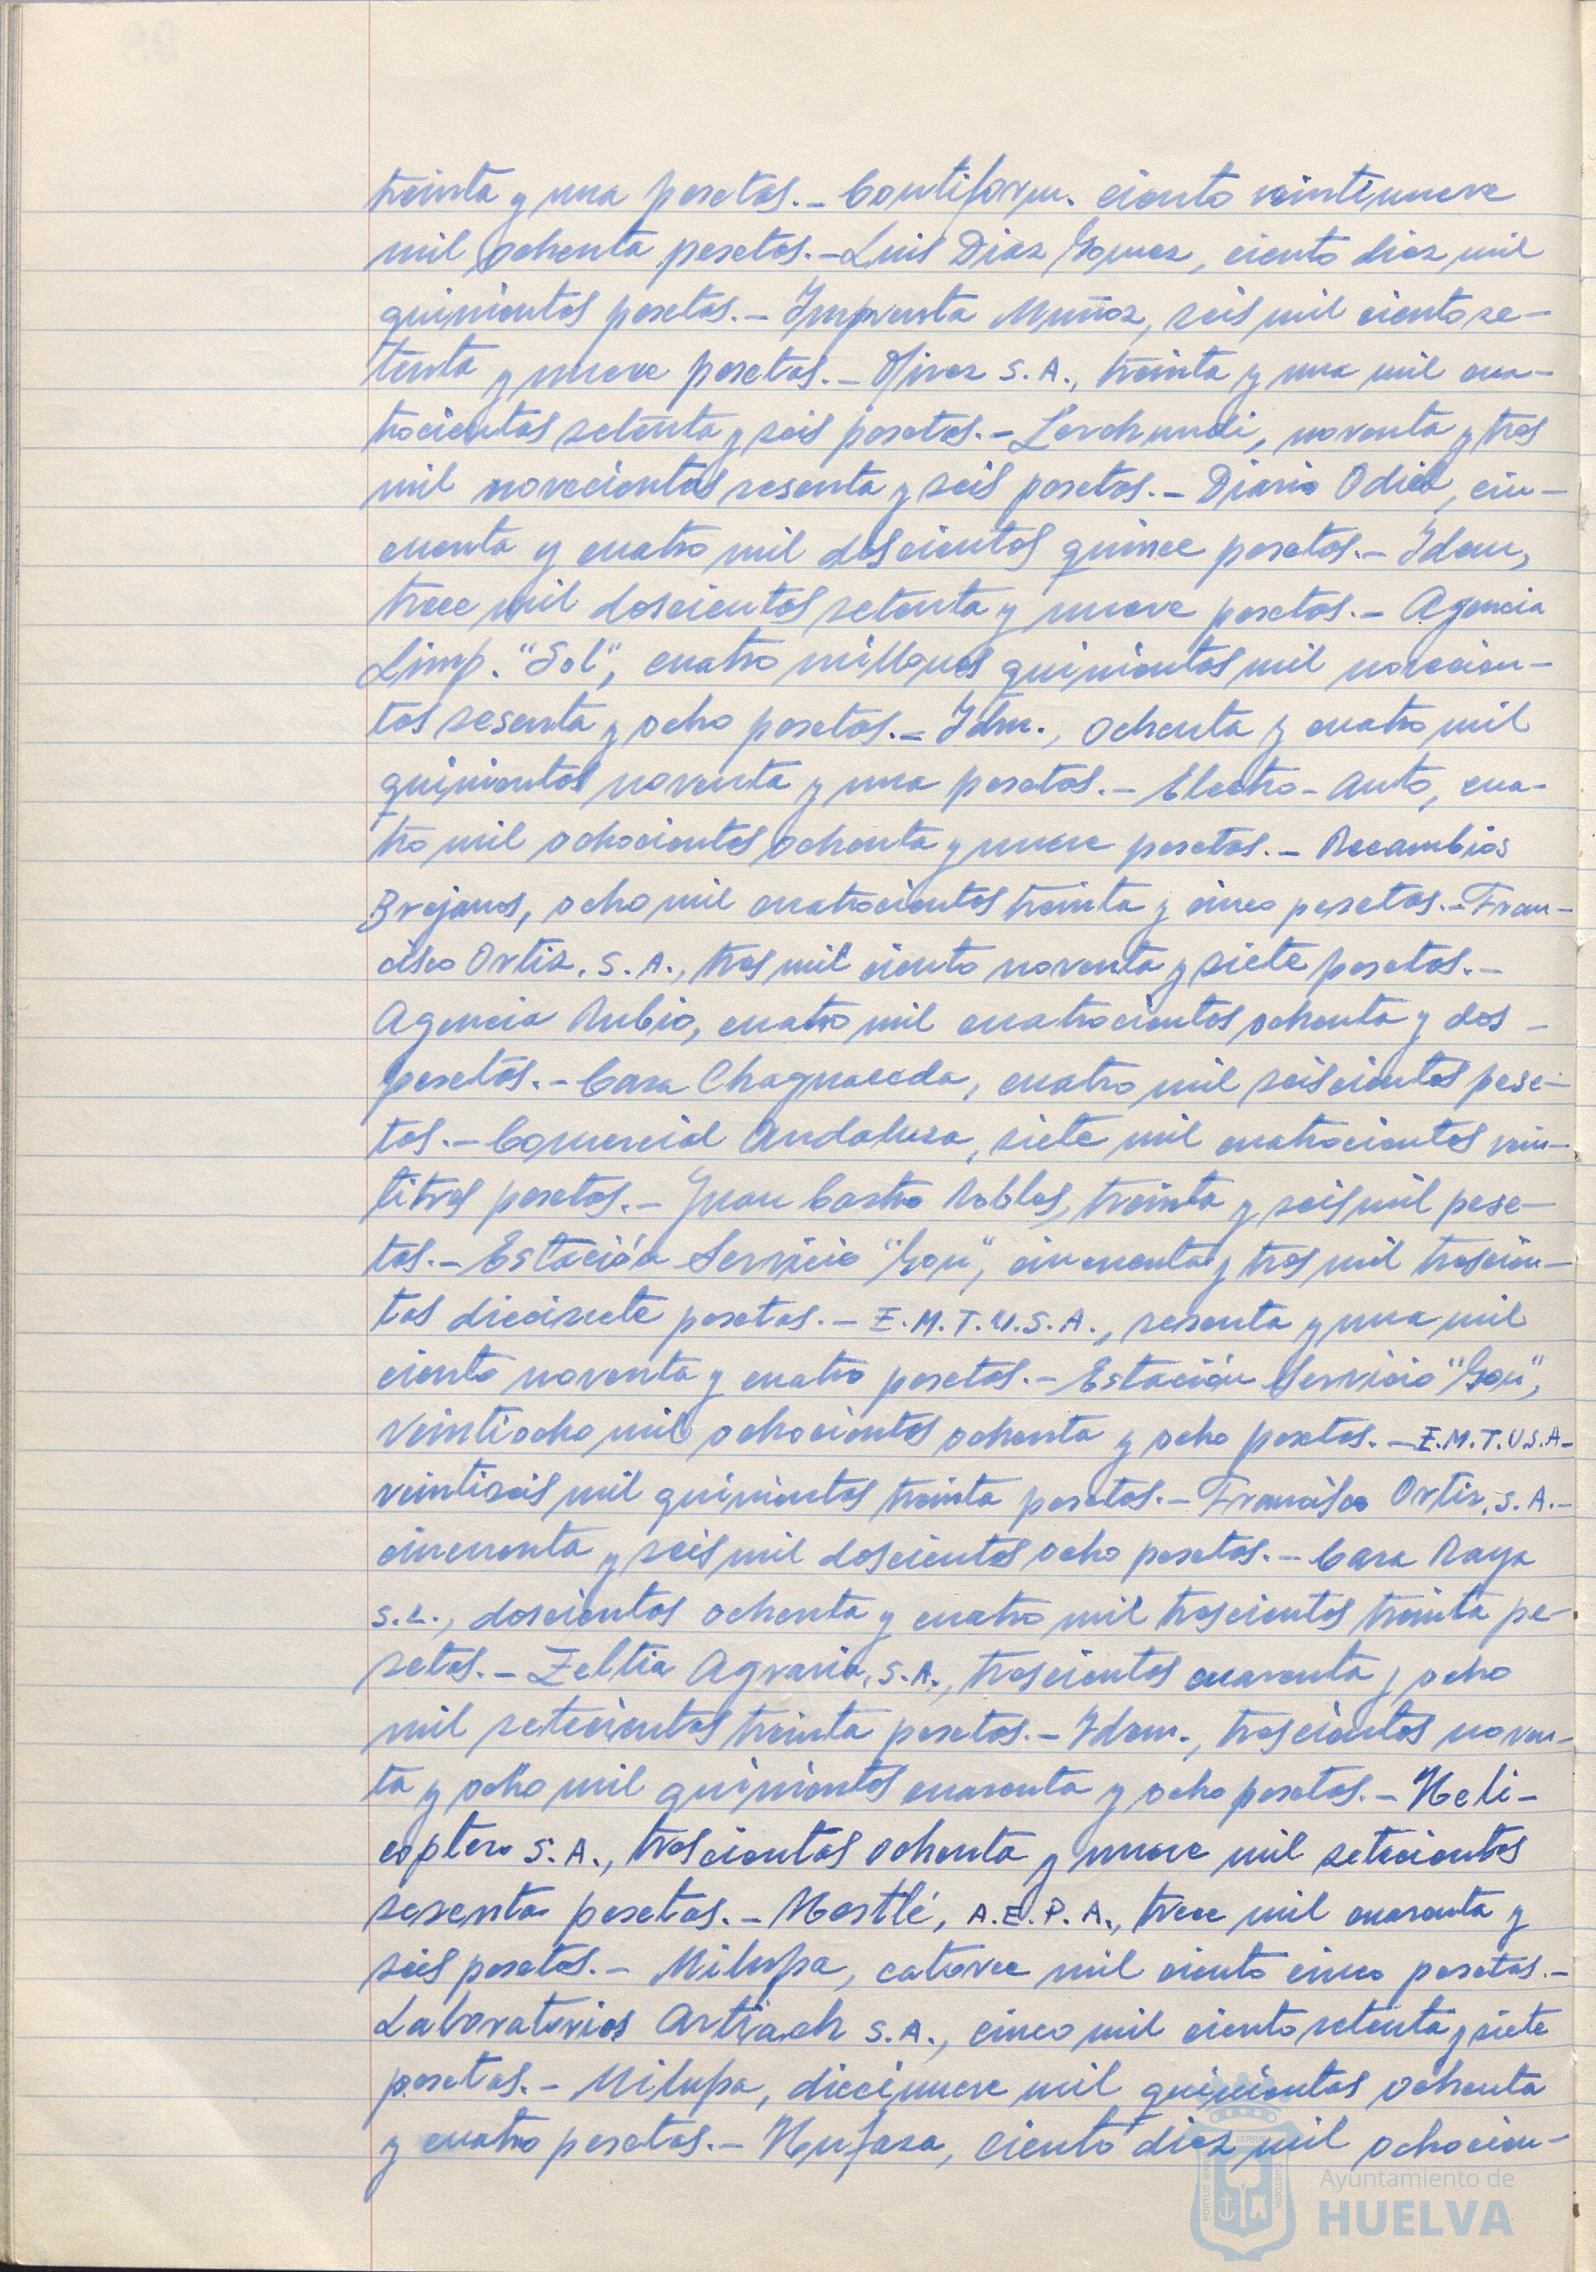 treinta y una pesetas.- Contiform. ciento veintinueve
mil ochenta pesetas.- Luis Diaz Gomez, ciento diez mil
quinientas pesetas.- Imprenta Muñoz, seis mil ciento se-
tenta y nueve pesetas.- Ofivez S.A., treinta y una mil cua-
trocientas setenta y seis pesetas.- Lerchundi, noventa y tres
mil novecientas sesenta y seis pesetas.- Diario Odiel, cin-
cuenta y cuatro mil doscientos quince pesetas.- Idem,
trece mil doscientas setenta y nueve pesetas.- Agencia
Limp. "Sol", cuatro millones quinientas mil novecien-
tas sesenta y ocho pesetas.- Idm., ochenta y cuatro mil
quinientas noventa y una pesetas.- Electro-Auto, cua-
tro mil ochocientas ochenta y nueve pesetas.- Recambios
Brejanos, ocho mil cuatrocientas treinta y cinco pesetas.- Fran-
cisco Ortiz, S.A., tres mil ciento noventa y siete pesetas.-
Agencia Rubio, cuatro mil cuatrocientas ochenta y dos -
pesetas.- Casa Chaguaceda, cuatro mil seiscientas pese-
tas.- Comercial Andaluza, siete mil cuatrocientas vein-
titres pesetas.- Juan Castro Robles, treinta y seis mil pese-
tas.- Estación Servicio "Gon", cincuenta y tres mil trescien-
tas diecisiete pesetas.- E.M.T.U.S.A., sesenta y una mil
ciento noventa y cuatro pesetas.- Estación Servicio "Gon",
veintiocho mil ochocientas ochenta y ocho pesetas.- E.M.T.U.S.A-
veintiseis mil quinientas treinta pesetas.- Francisco Ortiz, S.A.-
cincuenta y seis mil doscientas ocho pesetas.- Casa Raya
S.L., doscientas ochenta y cuatro mil trescientas treinta pe-
setas.- Zeltia Agraria, S.A., trescientas cuarenta y ocho
mil setecientas treinta pesetas.- Idem., trescientas noven-
ta y ocho mil quinientas cuarenta y ocho pesetas.- Heli-
coptero S.A., trescientas ochenta y nueve mil setecientas
sesenta pesetas.- Nestlé, A.E.P.A., trece mil cuarenta y
seis pesetas.- Milupa, catorce mil ciento cinco pesetas.-
Laboratorios Artiach S.A., cinco mil ciento setenta y siete
pesetas.- Milupa, diecinueve mil quinientas ochenta
y cuatro pesetas.- Hufasa, ciento diez mil ochocien-
Ayuntamiento de
HUELVA